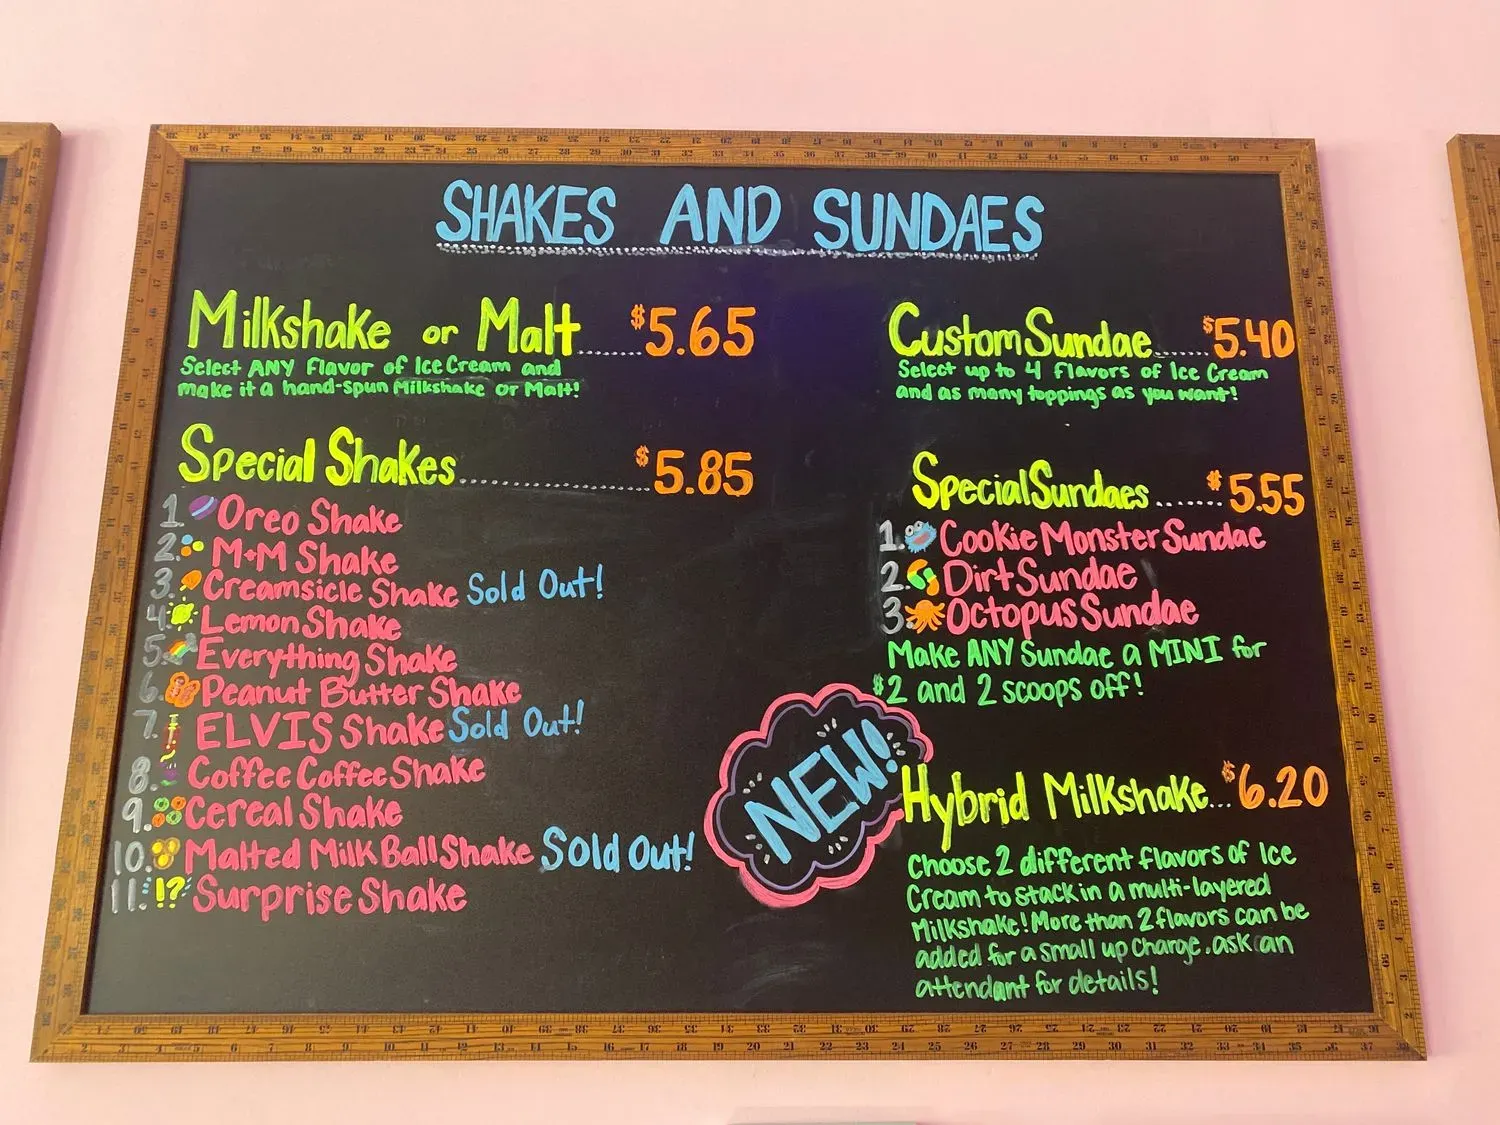 SHAKES AND SUNDAES
Milkshake or Malt......$5.65
Select ANY Flavor of Ice Cream and
make it a hand-spun Milkshake or Malt!
Special Shakes..................$5.85
1. Oreo Shake
2. M+M Shake
3. Creamsicle Shake Sold Out!
4. Lemon Shake
5. Everything Shake
6. Peanut Butter Shake
7. ELVIS Shake Sold Out!
8. Coffee Coffee Shake
9. Cereal Shake
10. Malted Milk Ball Shake Sold Out!
11. !? Surprise Shake
Custom Sundae......$5.40
Select up to 4 Flavors of Ice Cream
and as many toppings as you want!
Special Sundaes......$5.55
1. Cookie Monster Sundae
2. Dirt Sundae
3. Octopus Sundae
Make ANY Sundae a MINI for
$2 and 2 scoops off!
NEW!
Hybrid Milkshake...$6.20
Choose 2 different flavors of Ice
Cream to stack in a multi-layered
Milkshake! More than 2 flavors can be
added for a small up charge. ask an
attendant for details!